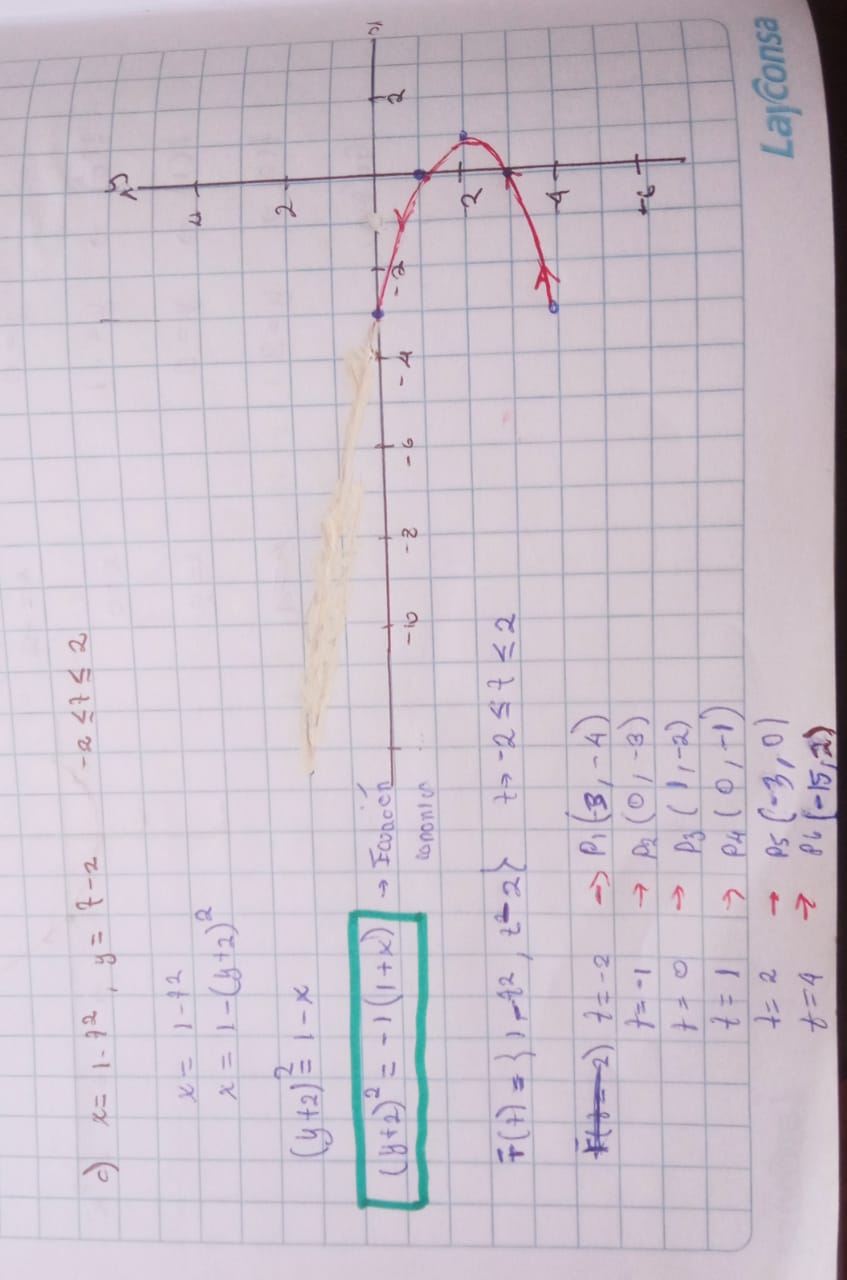 c) x = 1 - t², y = t - 2 -2 ≤ t ≤ 2
x = 1 - t²
x = 1 - (y+2)²
(y+2)² = 1 - x
(y+2)² = -1(1+x) →
r̄(t) = {1 - t², t - 2} t → -2 ≤ t ≤ 2
t = -2 → P1(-3, -4)
t = -1 → P2(0, -3)
t = 0 → P3(1, -2)
t = 1 → P4(0, -1)
t = 2 → P5(-3, 0)
t = 4 → P6(-15, 2)
y
4
2
-10 -8 -6 -4 -2 2
-2
-4
-6
Layconsa